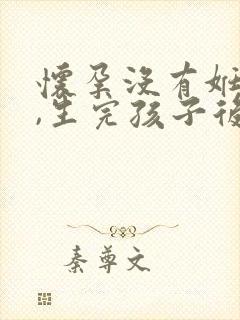 懷孕沒有妊
,生完孩子後
秦尊文